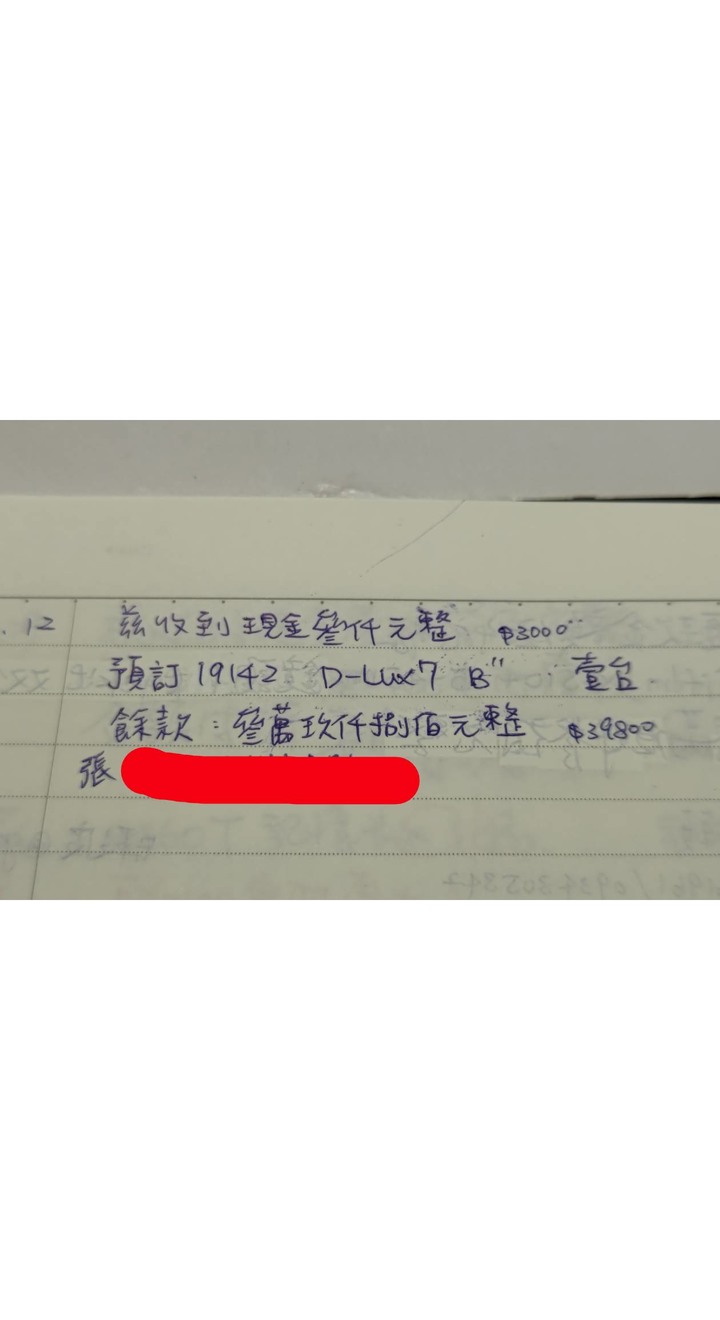 .12 茲收到現金參仟元整 $3000
預訂 19142 D-Lux7 B" 壹台.
餘款：參萬玖仟捌佰元整 $39800
張